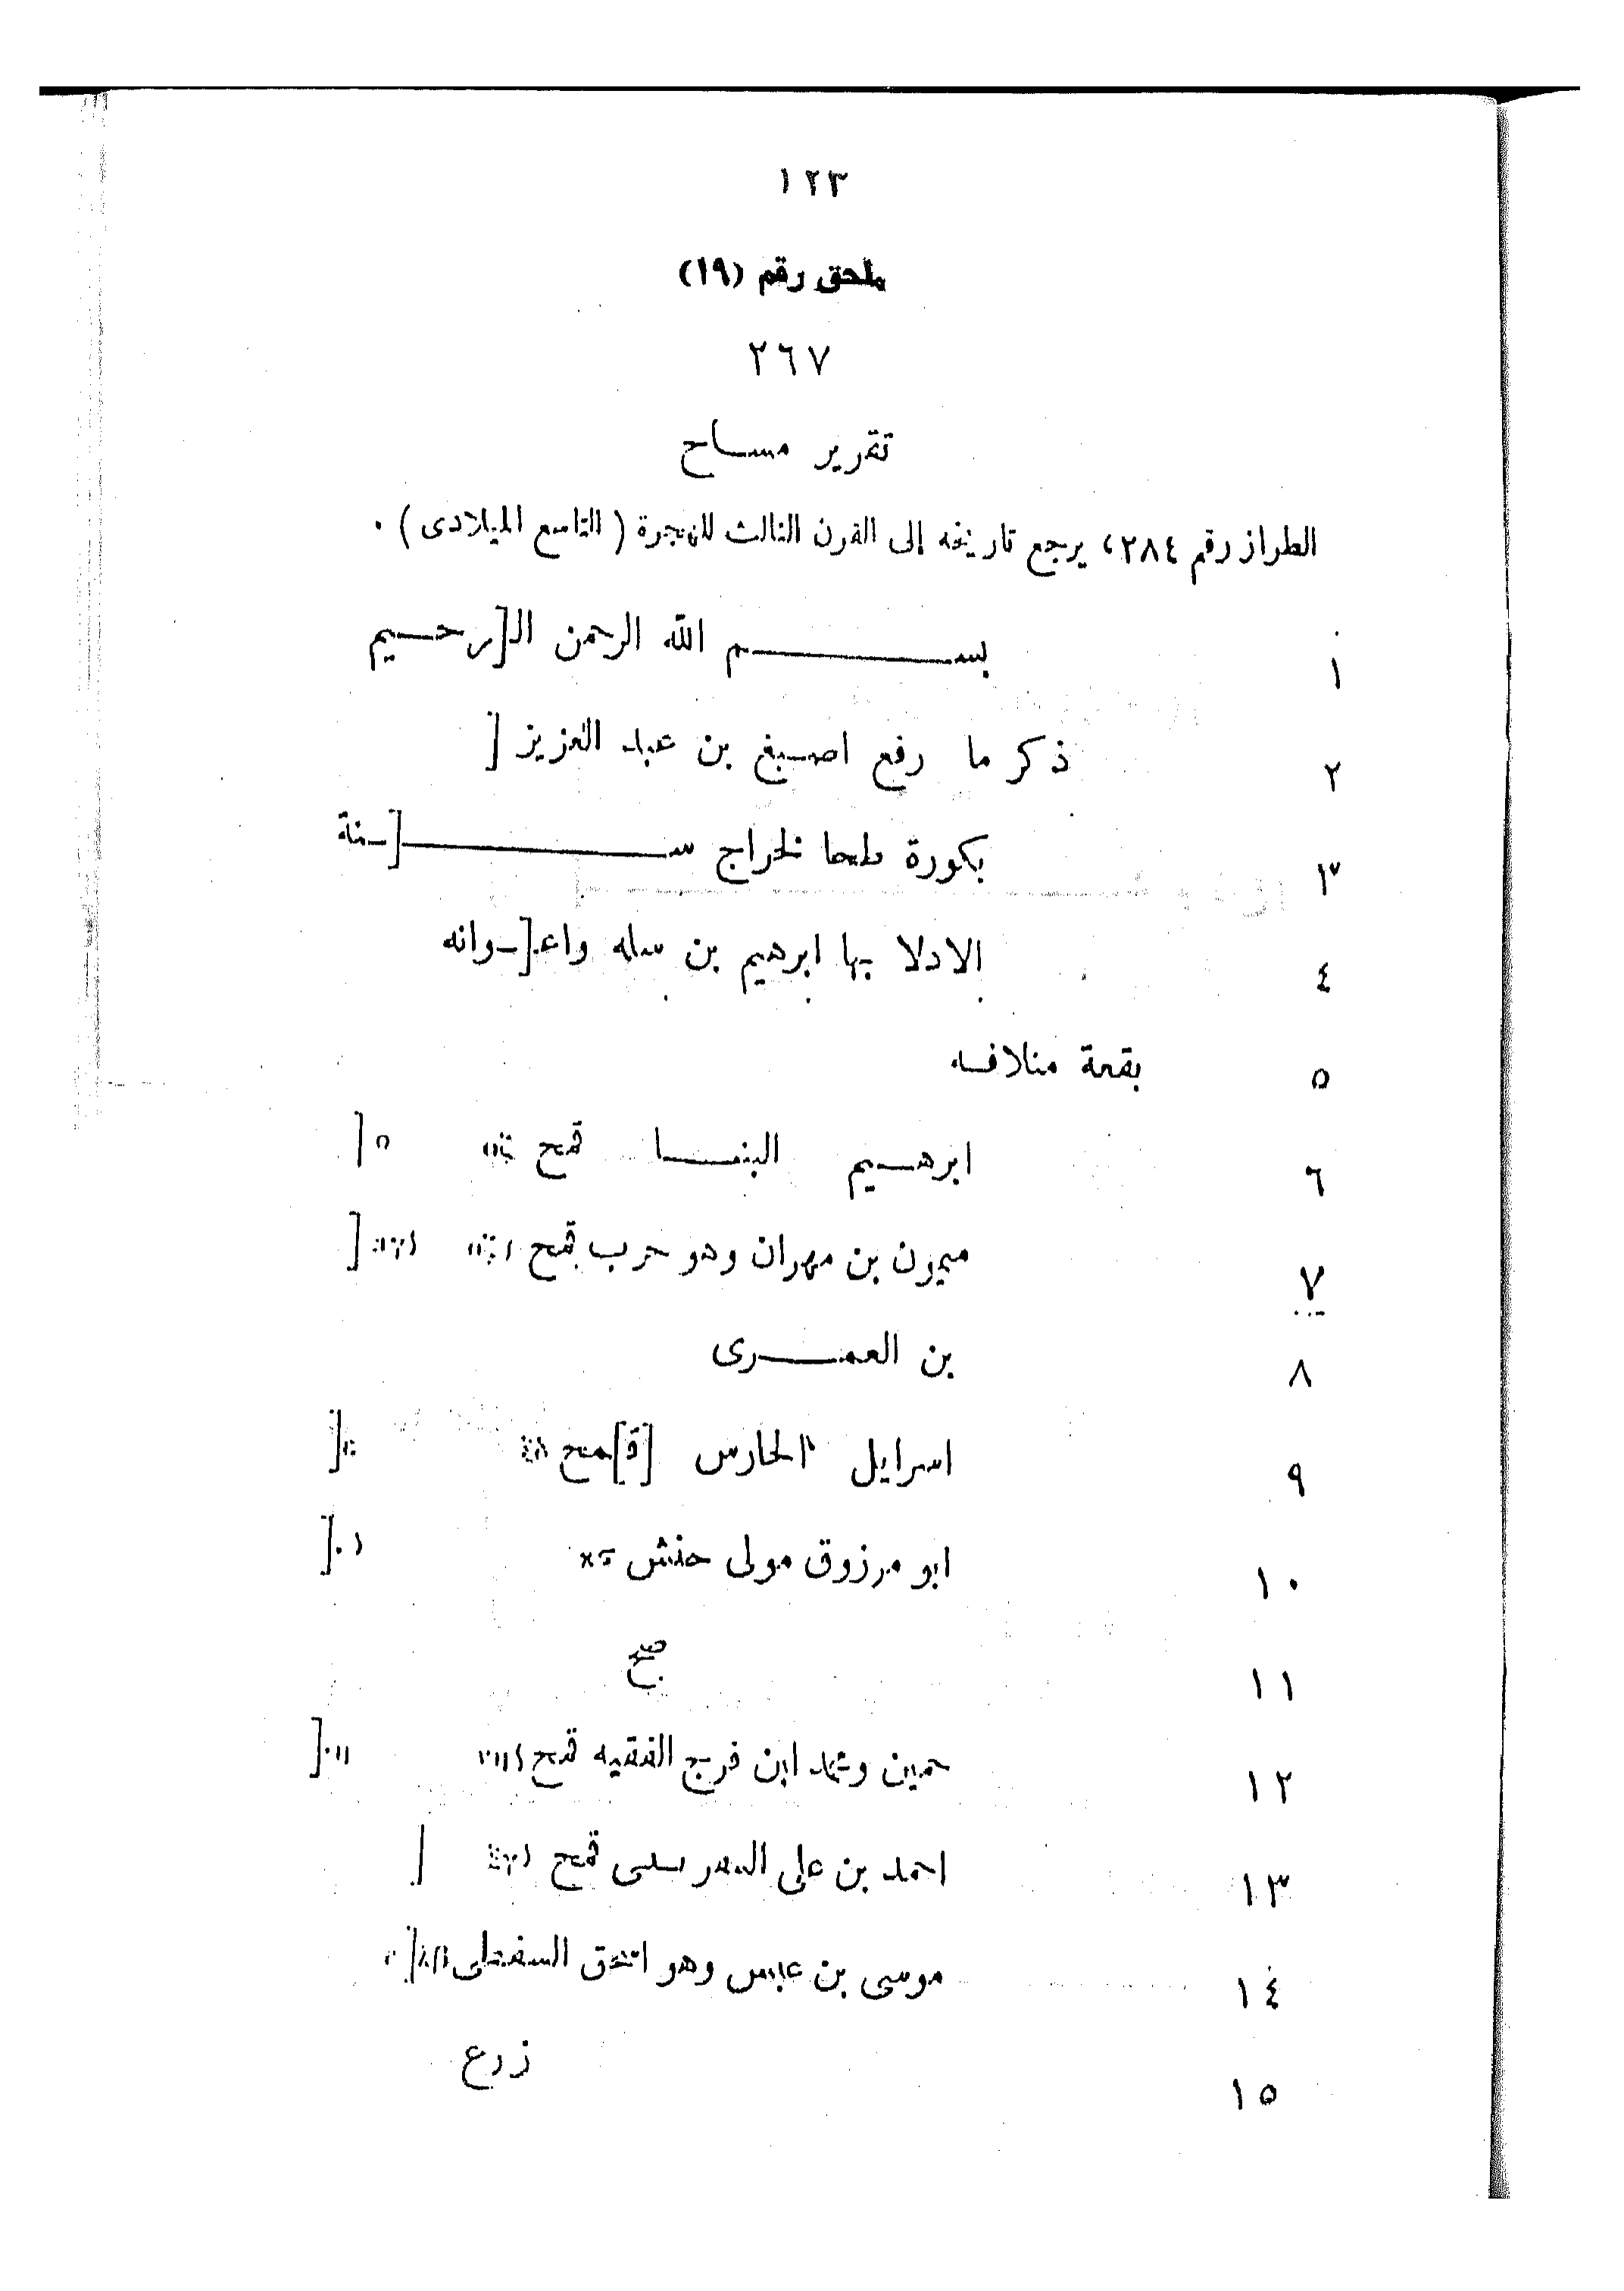 ١٢٣
ملحق رقم (١٩)
٢٦٧
تقرير مساح
الطراز رقم ٢٨٤، يرجع تاريخه إلى القرن الثالث للهجرة (التاسع الميلادى).
١ بســم الله الرحمن الـ[ـرحـيم
٢ ذكر ما رفع اصبغ بن عبد العزيز [
٣ بكورة طحا لخراج ســ[ـنة
٤ الادلا بها ابرهيم بن سله واعـ[ـوانه
٥ بقعة منلافسه
٦ ابرهـيم البنـا قمح
٧ ميمون بن مهران وهو حرب قمح
٨ بن العمـرى
٩ اسرايل الحارس [ق]ـمح
١٠ ابو مرزوق مولى حنش
١١ صح
١٢ حمين ومحمد ابن فرج الفقيه قمح
١٣ احمد بن على قمح
١٤ موسى بن عبس وهو السفطى
١٥ زرع